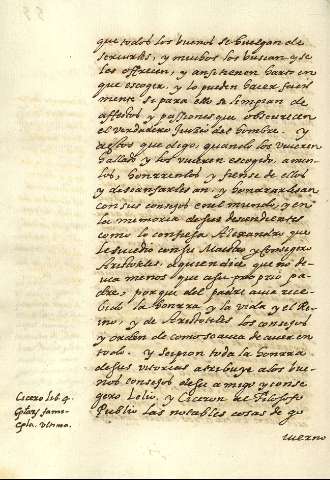 que todos los buenos se huelgan de
seruirles, y muchos los buscan y se
les offrecen, y ansi tienen harto en
que escoger, y lo pueden hacer facil
mente se para ello se limpian de
affectos y passiones que obscurecen
el verdadero Juicio del hombre. Y
a estos que digo, quando los vuieren
hallado y los vuieren escogido, amen
los, honrrenlos, y fiense de ellos
y descansarles an, y honrrarles an
con sus consejos en el mundo, y en
la memoria de sus descendientes
como lo confiesa Alexandro que
le sucedio con su Maestro y consegero
Aristoteles, a quien dice que no de
uia menos que a su proprio pa
dre, porque del padre auia rece
bido la honrra y la vida y el Re
ino, y de Aristoteles los consejos
y orden de como se auia de auer en
todo. y Scipion toda la honrra
de sus vitorias atribuye a los bue
nos consejos de su amigo y conse
gero Lelio, y Ciceron de
Publio las notables cosas de go
uierno
Cicero lib 4